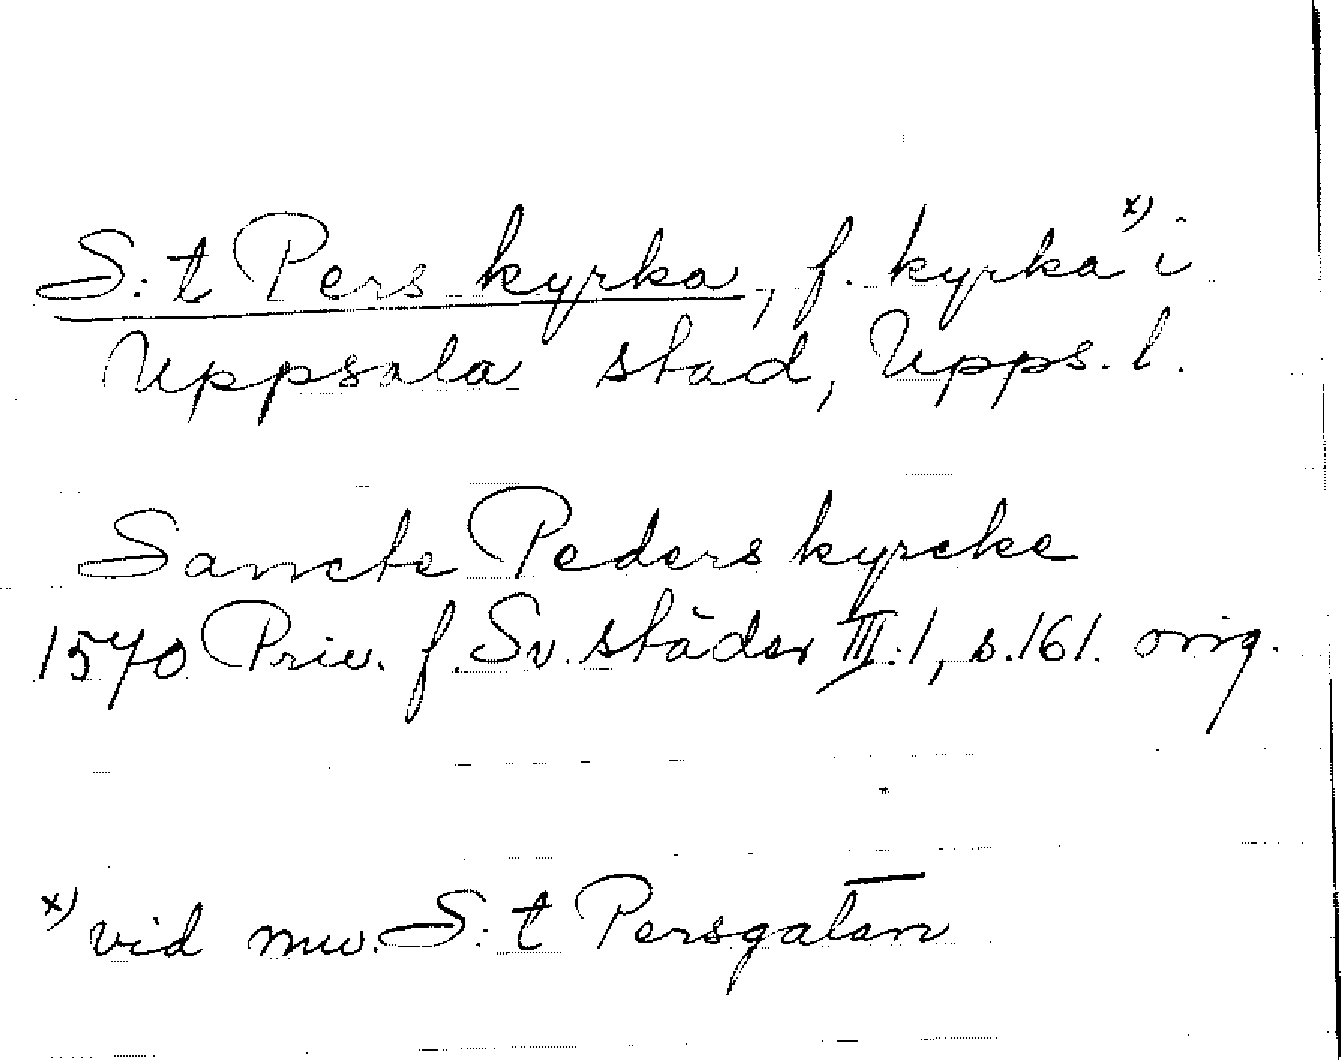 S:t Pers kyrka, f. kyrka x) i
Uppsala stad, Upps. l.
Sancte Peders kyrcke
1570 Priv. f. Sv. städer III:1, s. 161. orig.
x) vid nuv. S:t Persgatan